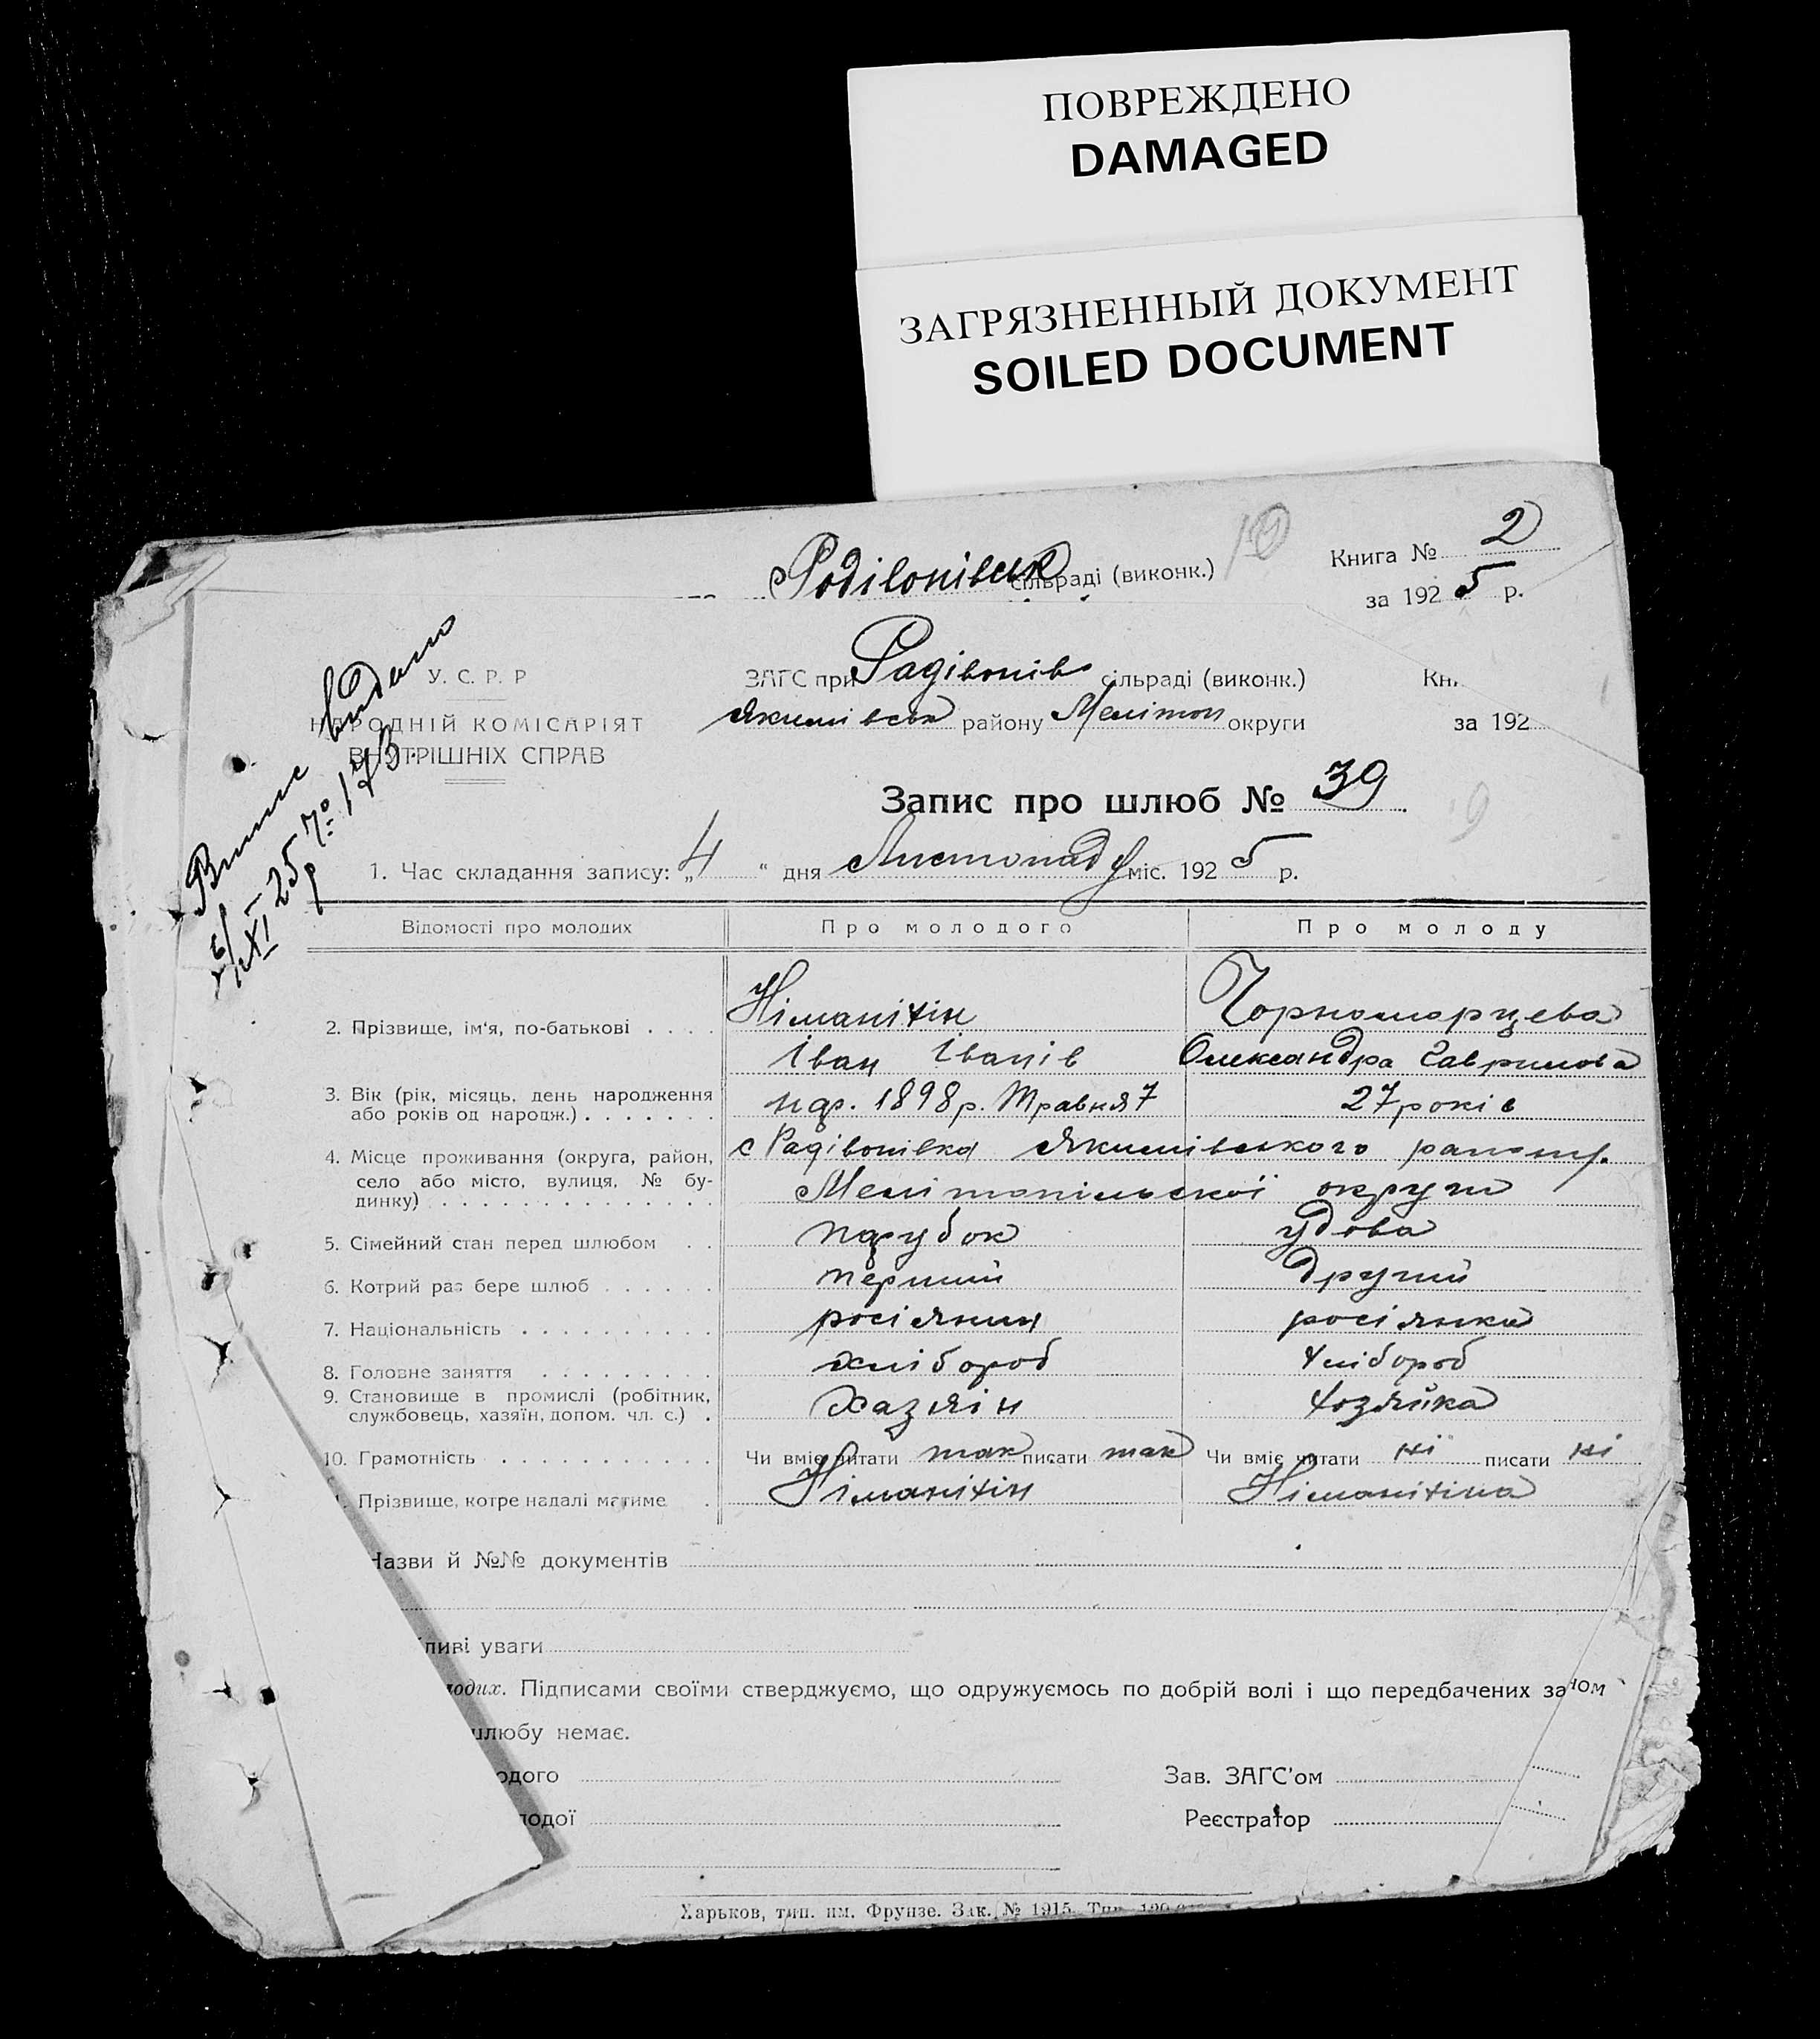 ПОВРЕЖДЕНО
DAMAGED
ЗАГРЯЗНЕННЫЙ ДОКУМЕНТ
SOILED DOCUMENT
сільраді (виконк.) 10 Книга № 2
за 1925 р.
У. С. Р. Р ЗАГС при Радівонів сільраді (виконк.) Кн
НАРОДНІЙ КОМІСАРІЯТ Якимівськ району Мелітоп округи за 192
ВНУТРІШНІХ СПРАВ
Випис видано
№ 173
Запис про шлюб № 39
9
1. Час складання запису: „4“ дня Листопаду міс. 1925 р.
Відомості про молодих Про молодого Про молоду
2. Прізвище, ім'я, по-батькові Німанітін Чорноморцева
Іван Іванів Олександра Гаврилова
3. Вік (рік, місяць, день народження
або років од народж.) нар. 1898 р. Травня 7 27 років
4. Місце проживання (округа, район, с Радівонівка Якимівського
село або місто, вулиця, № бу-
динку) Мелітопільської округи
5. Сімейний стан перед шлюбом парубок удова
6. Котрий раз бере шлюб перший другий
7. Національність росіянин росіянка
8. Головне заняття хлібороб хлібороб
9. Становище в промислі (робітник,
службовець, хазяїн, допом. чл. с.) Хазяін хозяйка
10. Грамотність Чи вміє читати так писати так Чи вміє читати ні писати ні
Прізвище, котре надалі матиме Німанітін Німанітіна
Назви й №№ документів
ливі уваги
одих. Підписами своїми стверджуємо, що одружуємось по добрій волі і що передбачених за ном
шлюбу немає.
одого Зав. ЗАГС'ом
лодої Реєстратор
Харьков, тип. им. Фрунзе. Зак. № 1915.